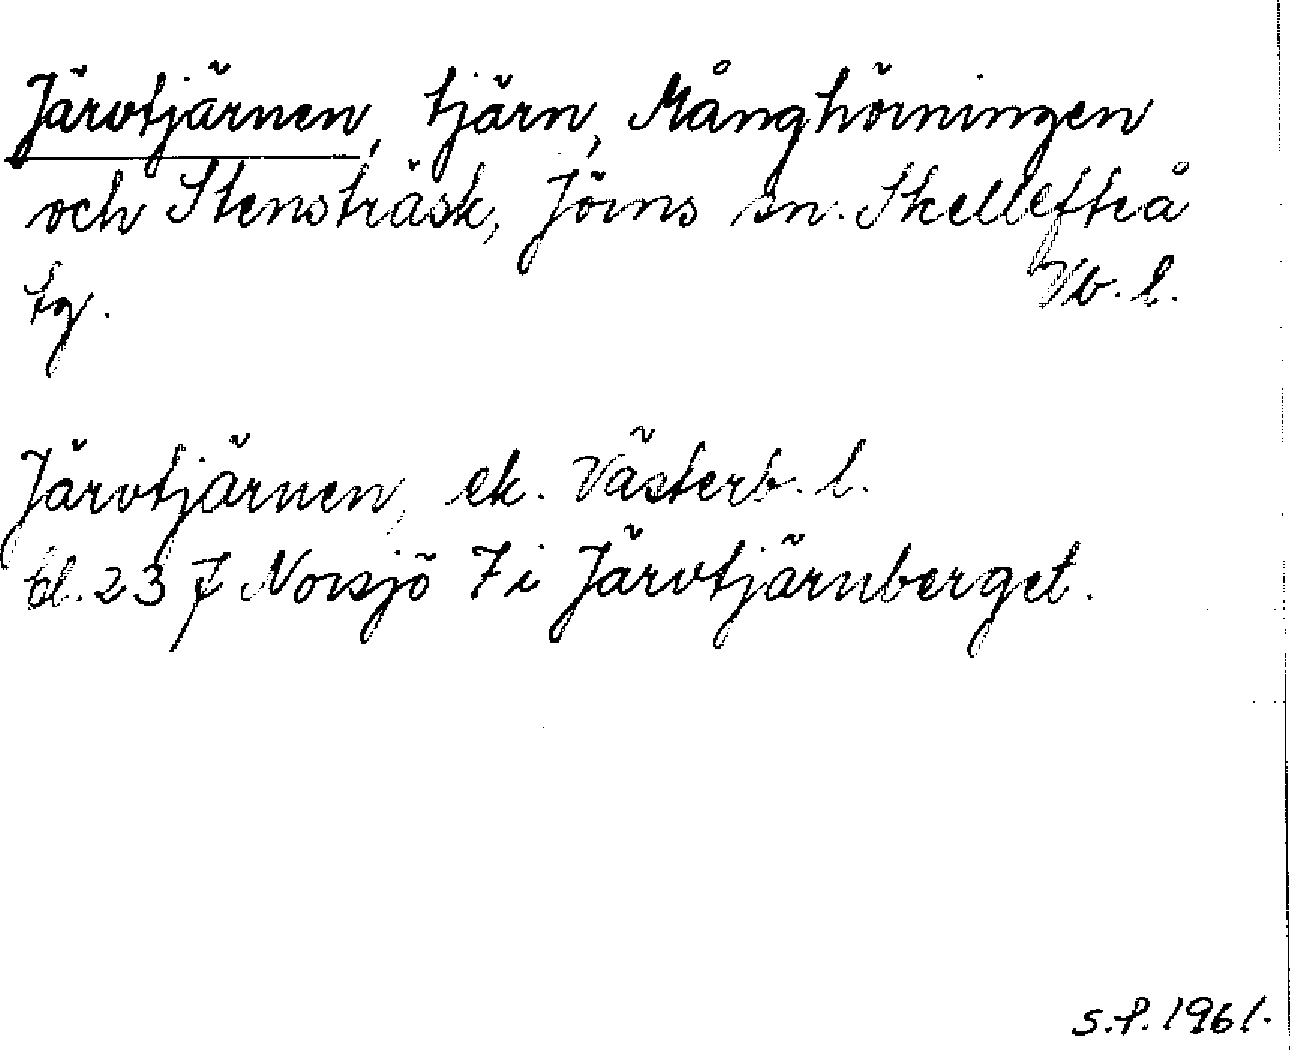 Järvtjärnen, tjärn, Månghörningen
och Stensträsk, Jörns sn. Skellefteå
tg. Vb. l.
Järvtjärnen, ek. Västerb. l.
bl. 23 f Norsjö 7 i Järvtjärnberget.
S.P. 1961.